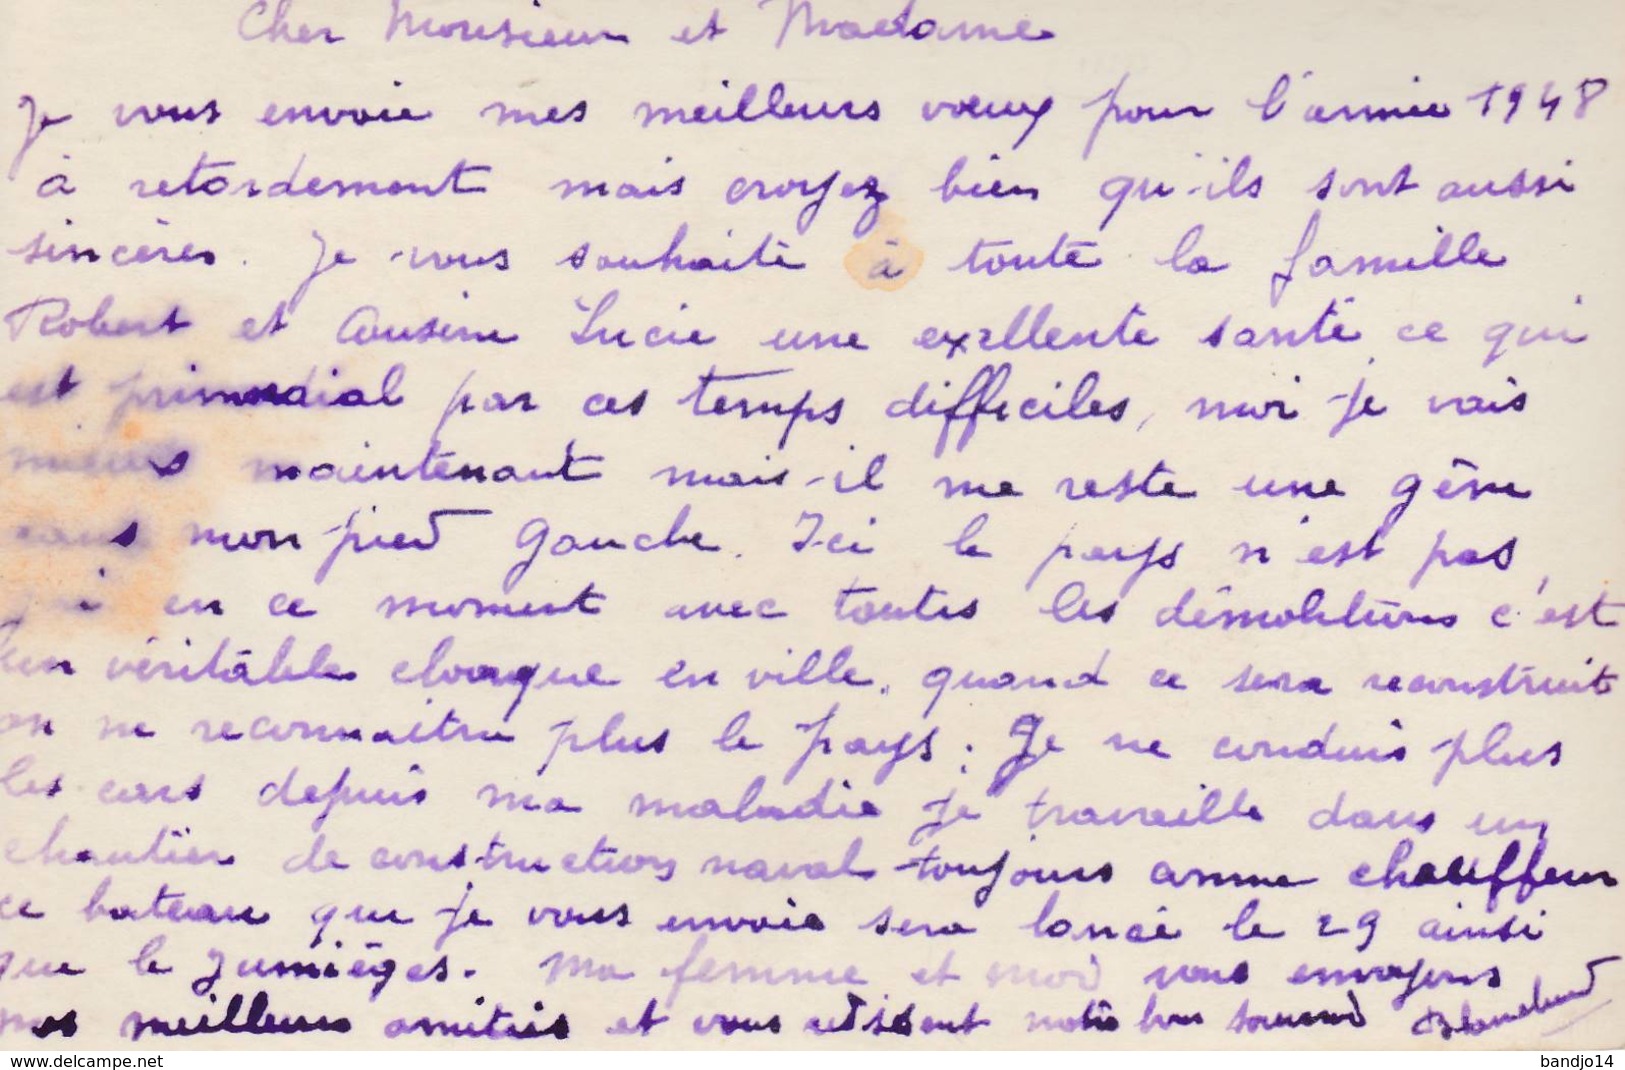 Cher Monsieur et Madame
Je vous envoie mes meilleurs vœux pour l'année 1948
à retardement mais croyez bien qu'ils sont aussi
sincères. Je vous souhaite à toute la famille
Robert et Cousine Lucie une exellente santé ce qui
est primordial par ces temps difficiles, moi je vais
mieux maintenant mais il me reste une gêne
dans mon pied gauche. Ici le pays n'est pas
gai en ce moment avec toutes les démolitions c'est
un véritable cloaque en ville. quand ce sera reconstruit
on ne reconnaitra plus le pays. Je ne conduis plus
les cars depuis ma maladie je travaille dans un
chantier de construction naval toujours comme chauffeur
ce bateau que je vous envoie sera lancé le 29 ainsi
que le Jumièges. Ma femme et moi vous envoyons
nos meilleurs amitiés et vous disent notre bon souvenir Blanchard
www.delcampe.net
bandjo14